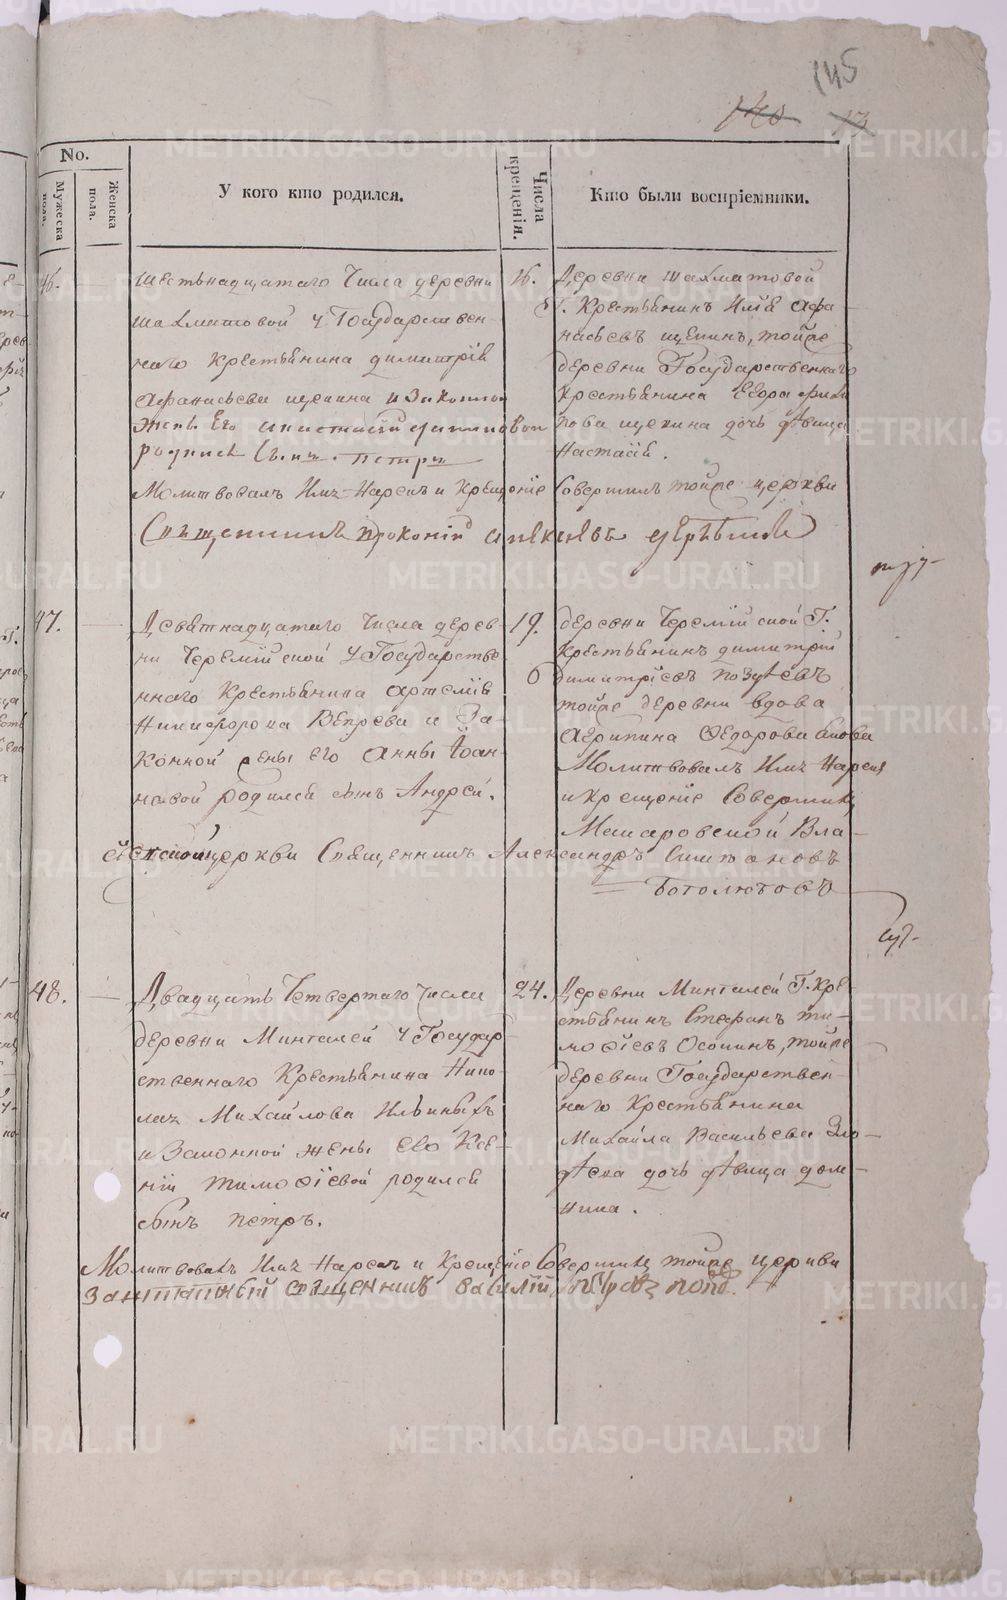 145
140 13
No.
Мужеска пола.
Женска пола.
У кого кто родился.
Числа крещенія.
Кто были воспріемники.
46.
Шестьнадцатаго Числа деревни
Шахматовой у Государствен-
наго Крестьянина Димитрія
Афанасьева Щепина и Законной
жены Его
родился Сынъ Петръ
16.
Деревни Шахматовой
Г. Крестьянинъ Илья Афа-
насьевъ Щепинъ, тойже
деревни Государственнаго
Крестьянина Егора Фили-
пова Щепина дочь дѣвица
Настасія.
Молитвовалъ Имя Нарекъ и Крещеніе Совершилъ тойже церкви
Священникъ Прокопій
47.
Девятнадцатаго Числа дерев-
ни Черемійской у Государстве-
ннаго Крестьянина Артемія
Никифорова Вепрева и За-
конной жены Его Анны Іоан-
новой родился сынъ Андрей.
19.
деревни Черемійской Г.
Крестьянинъ Димитрій
Димитріевъ
тойже деревни вдова
Агрипина Федорова
Молитвовалъ Имя Нарекъ
и Крещеніе Совершилъ
Макаровской Вла-
церкви Священникъ Александръ
Боголюбовъ
48.
Двадцать Четвертаго Числа
деревни Минталей у Государ
ственнаго Крестьянина Нико-
лая Михайлова Ильиныхъ
и Законной жены его Ксе-
ніи Тимофіевой родился
сынъ Петръ.
24.
Деревни Минталей Г. Кре-
стьянинъ Стефанъ Ти-
мофіевъ Осопинъ, тойже
деревни Государствен-
наго Крестьянина
Михайла Васильева
дочь дѣвица Дом-
ника.
Молитвовалъ Имя Нарекъ и Крещеніе Совершилъ тойже церкви
Заштатный Священникъ Василій Петровъ Поповъ.
METRIKI.GASO-URAL.RU